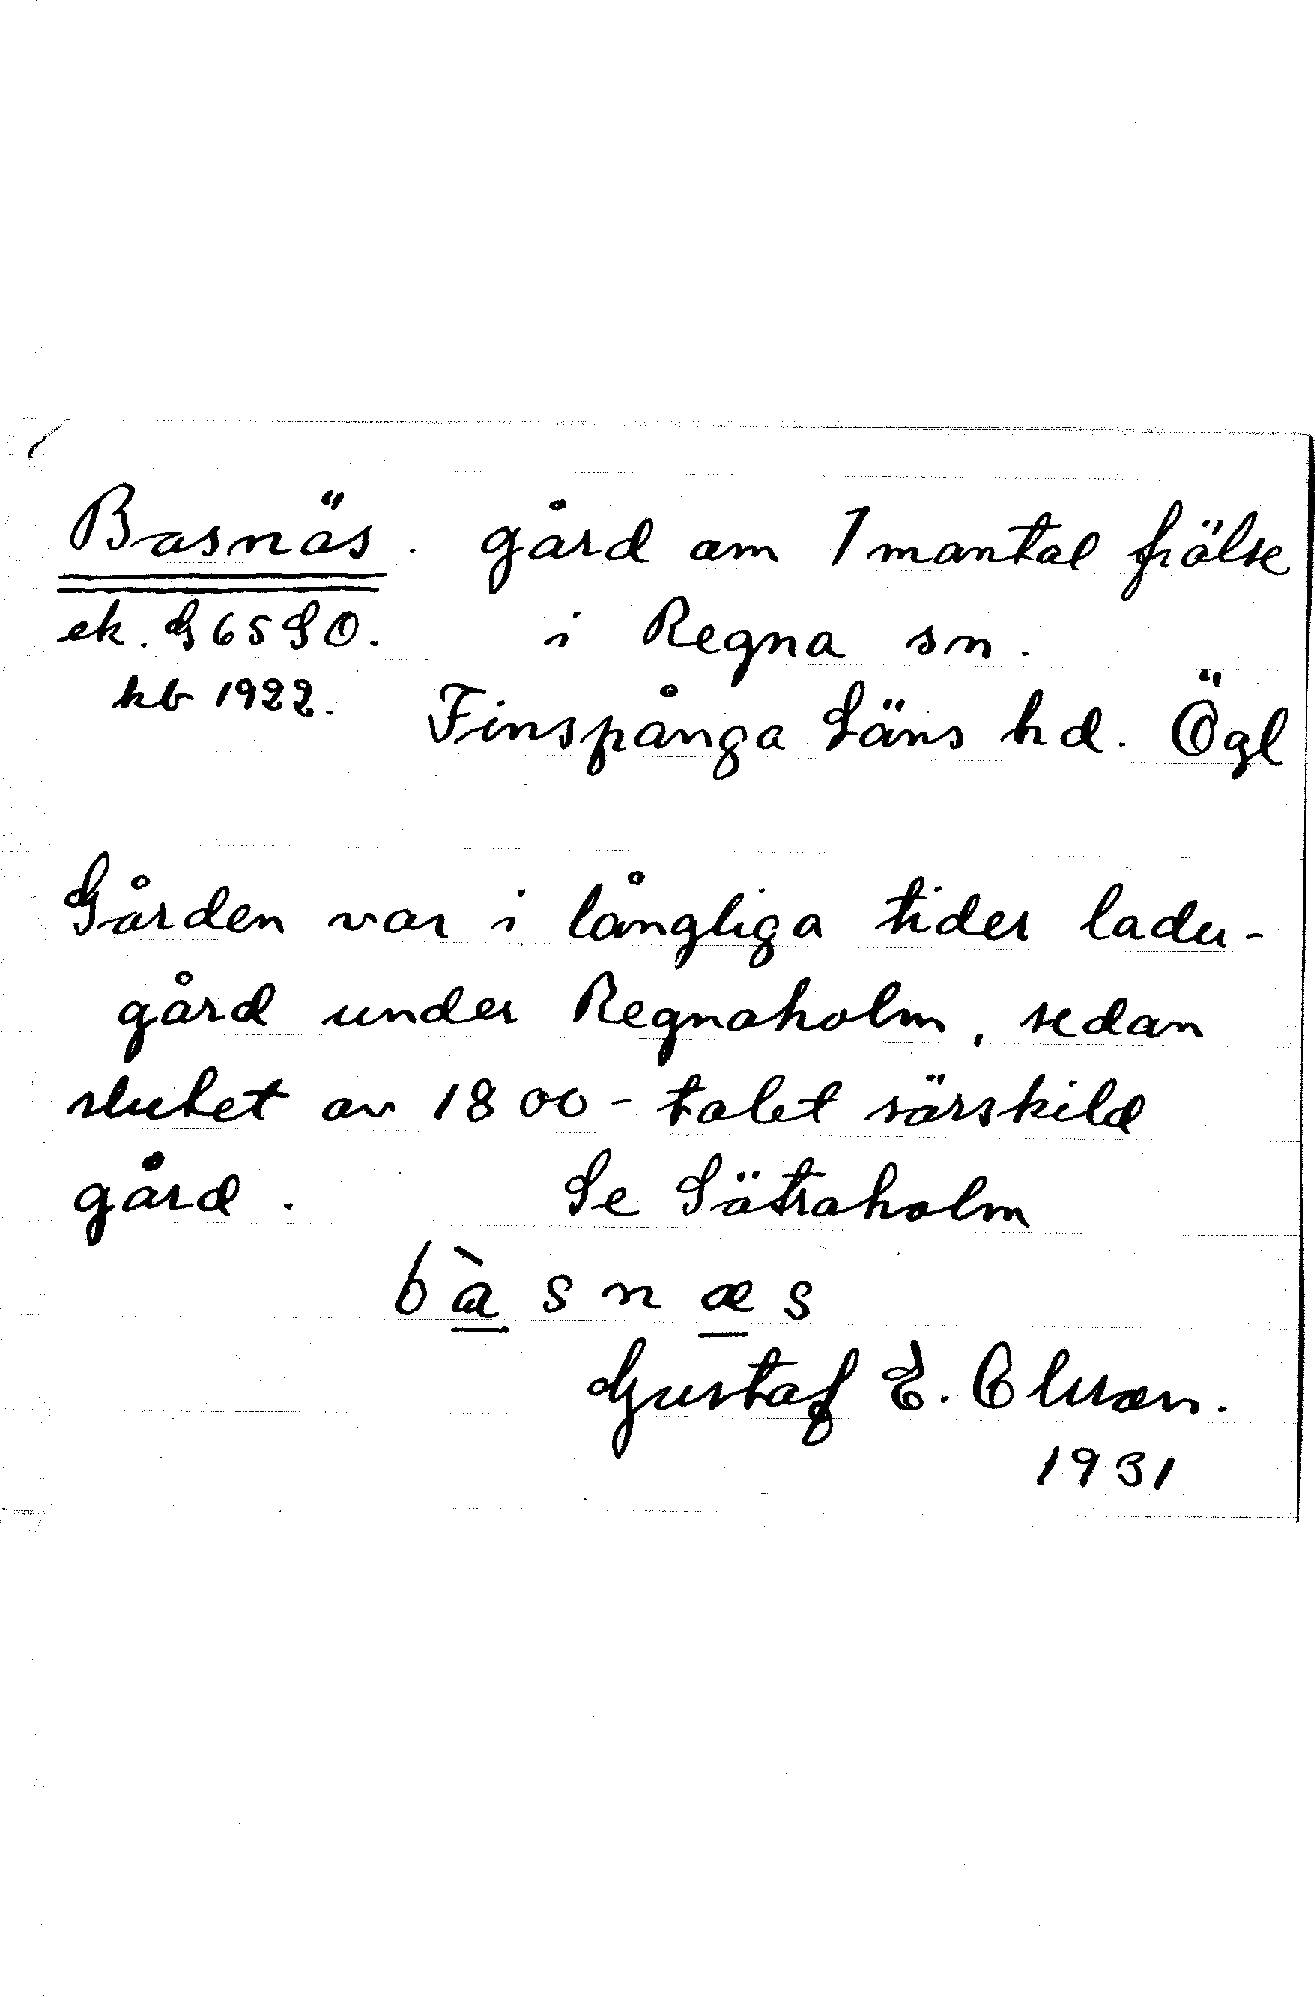 Basnäs. gård om 1 mantal frälse
ek. G65SO. i Regna sn.
kb 1922. Finspånga Läns hd. Ögl
Gården var i långliga tider ladu-
gård under Regnaholm, sedan
slutet av 1800-talet särskild
gård. Se Sätraholm
bàsnæs
Gustaf E. Olsson.
1931